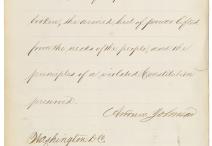 broken, the armed heel of power lifted
from the necks of the people, and the
principles of a violated Constitution
preserved.
Andrew Johnson
Washington D.C.